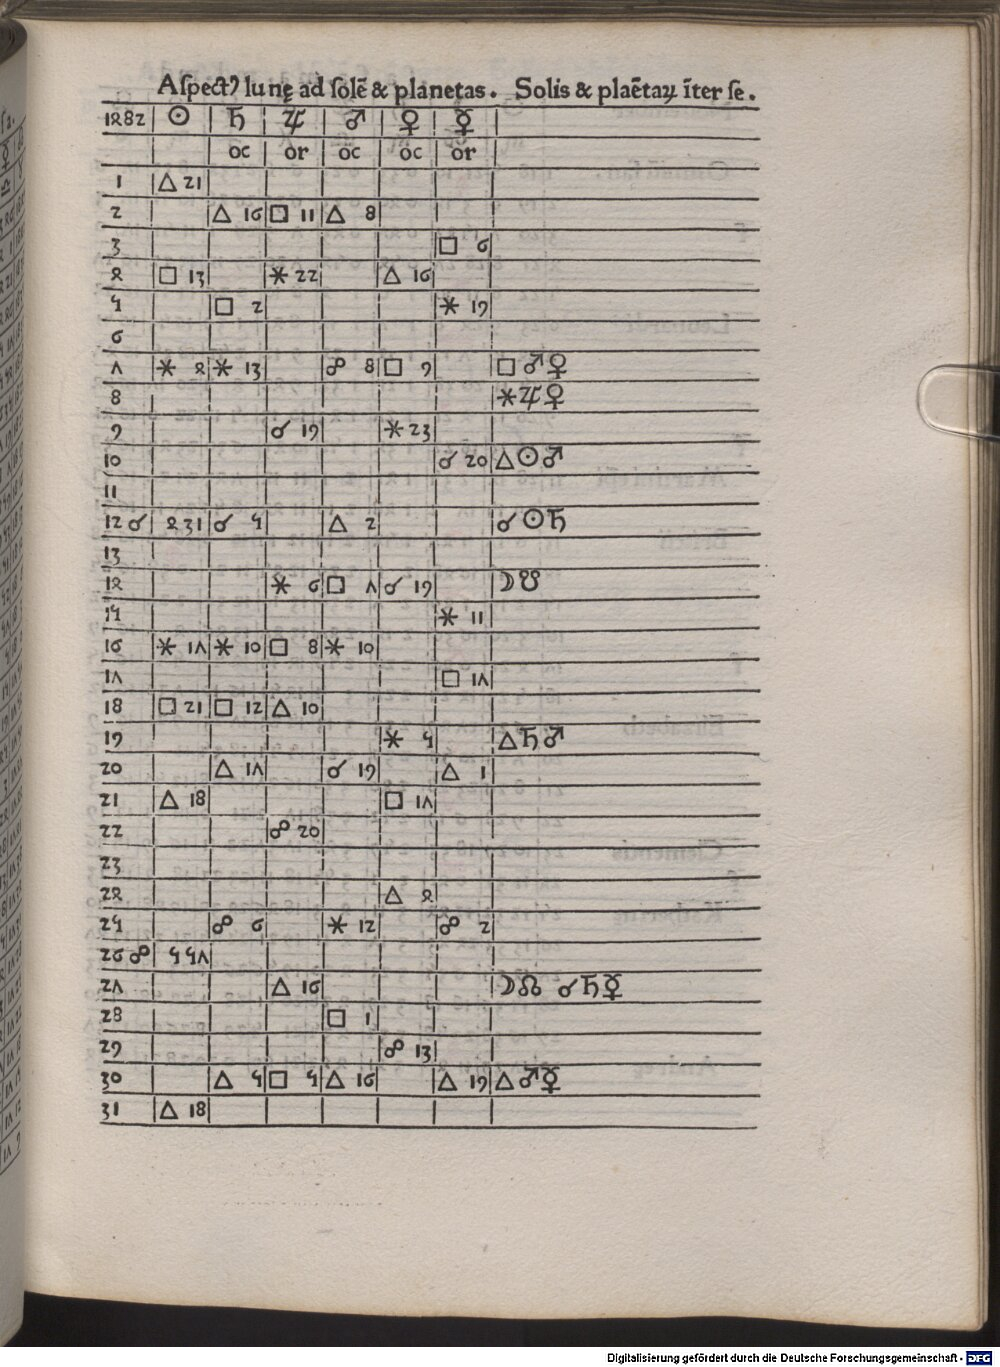 Aſpectꝰ lunę ad ſolē & planetas . Solis & plaētaꝝ īter ſe .
1482 ☉ ♄ ♃ ♂ ♀ ☿
oc or oc oc or
1 △ 21
2 △ 16 □ 11 △ 8
3 □ 6
4 □ 13 ⚹ 22 △ 16
5 □ 2 ⚹ 19
6
7 ⚹ 4 ⚹ 13 ☍ 8 □ 9 □ ♂ ♀
8 ⚹ ♃ ♀
9 ☌ 19 ⚹ 23
10 ☌ 20 △ ☉ ♂
11
12 ☌ 4 31 ☌ 5 △ 2 ☌ ☉ ♄
13
14 ⚹ 6 □ 7 ☌ 19 ☽ ☋
15 ⚹ 11
16 ⚹ 17 ⚹ 10 □ 8 ⚹ 10
17 □ 17
18 □ 21 □ 12 △ 10
19 ⚹ 5 △ ♄ ♂
20 △ 17 ☌ 19 △ 1
21 △ 18 □ 17
22 ☍ 20
23
24 △ 4
25 ☍ 6 ⚹ 12 ☍ 2
26 ☍ 5 57
27 △ 16 ☽ ☊ ☌ ♄ ☿
28 □ 1
29 ☍ 13
30 △ 5 □ 5 △ 16 △ 19 △ ♂ ☿
31 △ 18
Digitalisierung gefördert durch die Deutsche Forschungsgemeinschaft - DFG